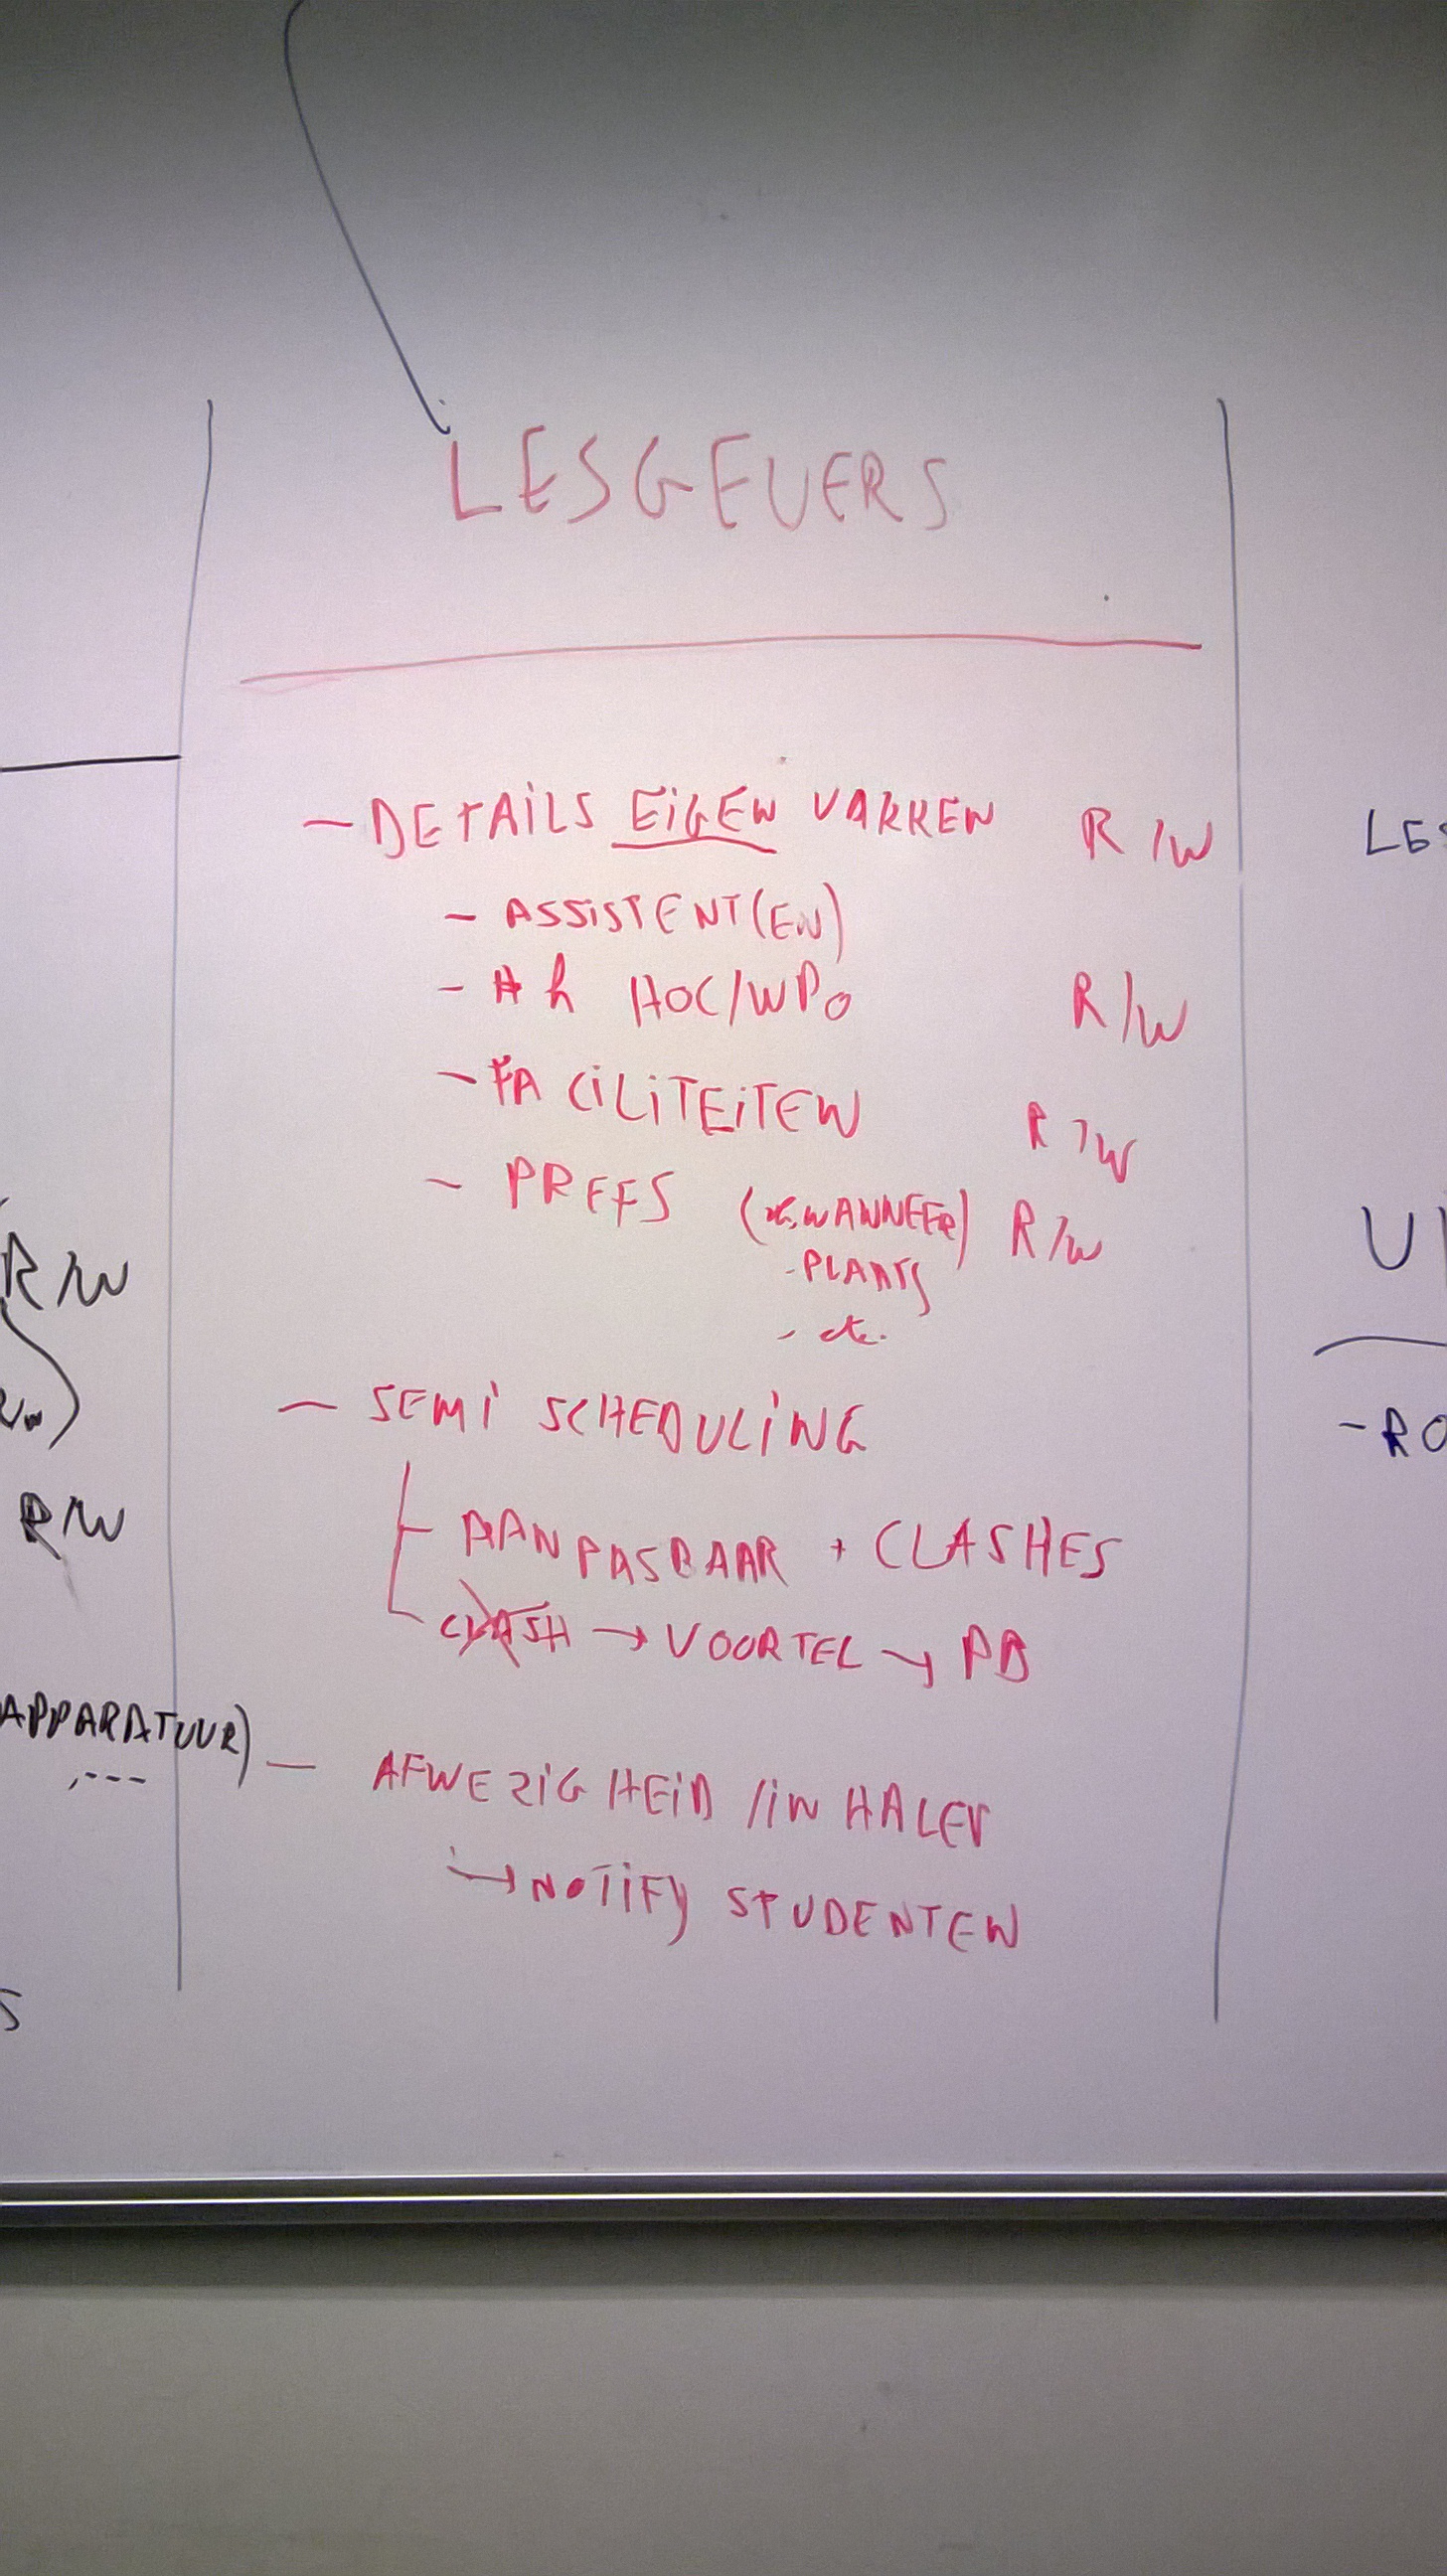 LESGEVERS
- DETAILS EIGEN VAKKEN R/W
- ASSISTENT(EN)
- # h HOC/WPO R/W
- FACILITEITEN R/W
- PREFS (WANNEER) R/W
- PLAATS
- etc.
- SEMI SCHEDULING
AANPASBAAR + CLASHES
CLASH → VOORTEL → PB
- AFWEZIGHEID / INHALEN
→ NOTIFY STUDENTEN
R/W
R/W
APPARATUUR)
,---
S
LES
U
- RO